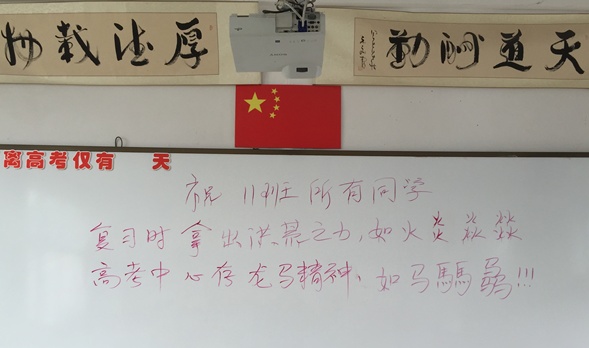 天道酬勤
厚德載物
离高考仅有 天
祝 11班 所有同学
复习时 拿出洪荒之力,如火 炎 焱 燚
高考中 心存龙马精神、如马騳驫!!!